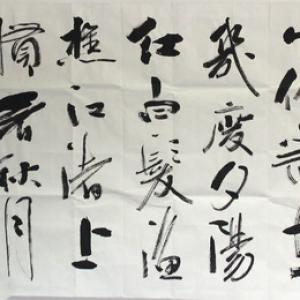 山依舊在
幾度夕陽
红白髮漁
樵江渚上
慣看秋月